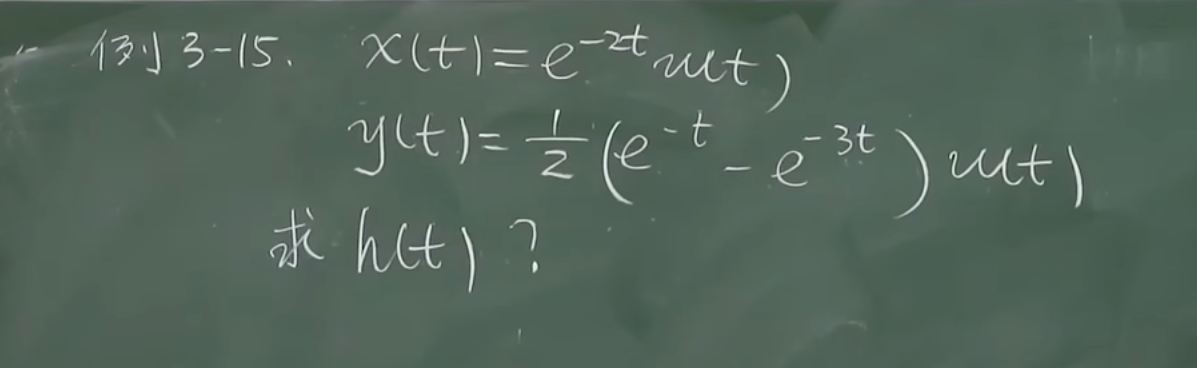 例3-15. x(t)=e^{-2t}u(t)
y(t)=\frac{1}{2}(e^{-t}-e^{-3t})u(t)
求 h(t)?